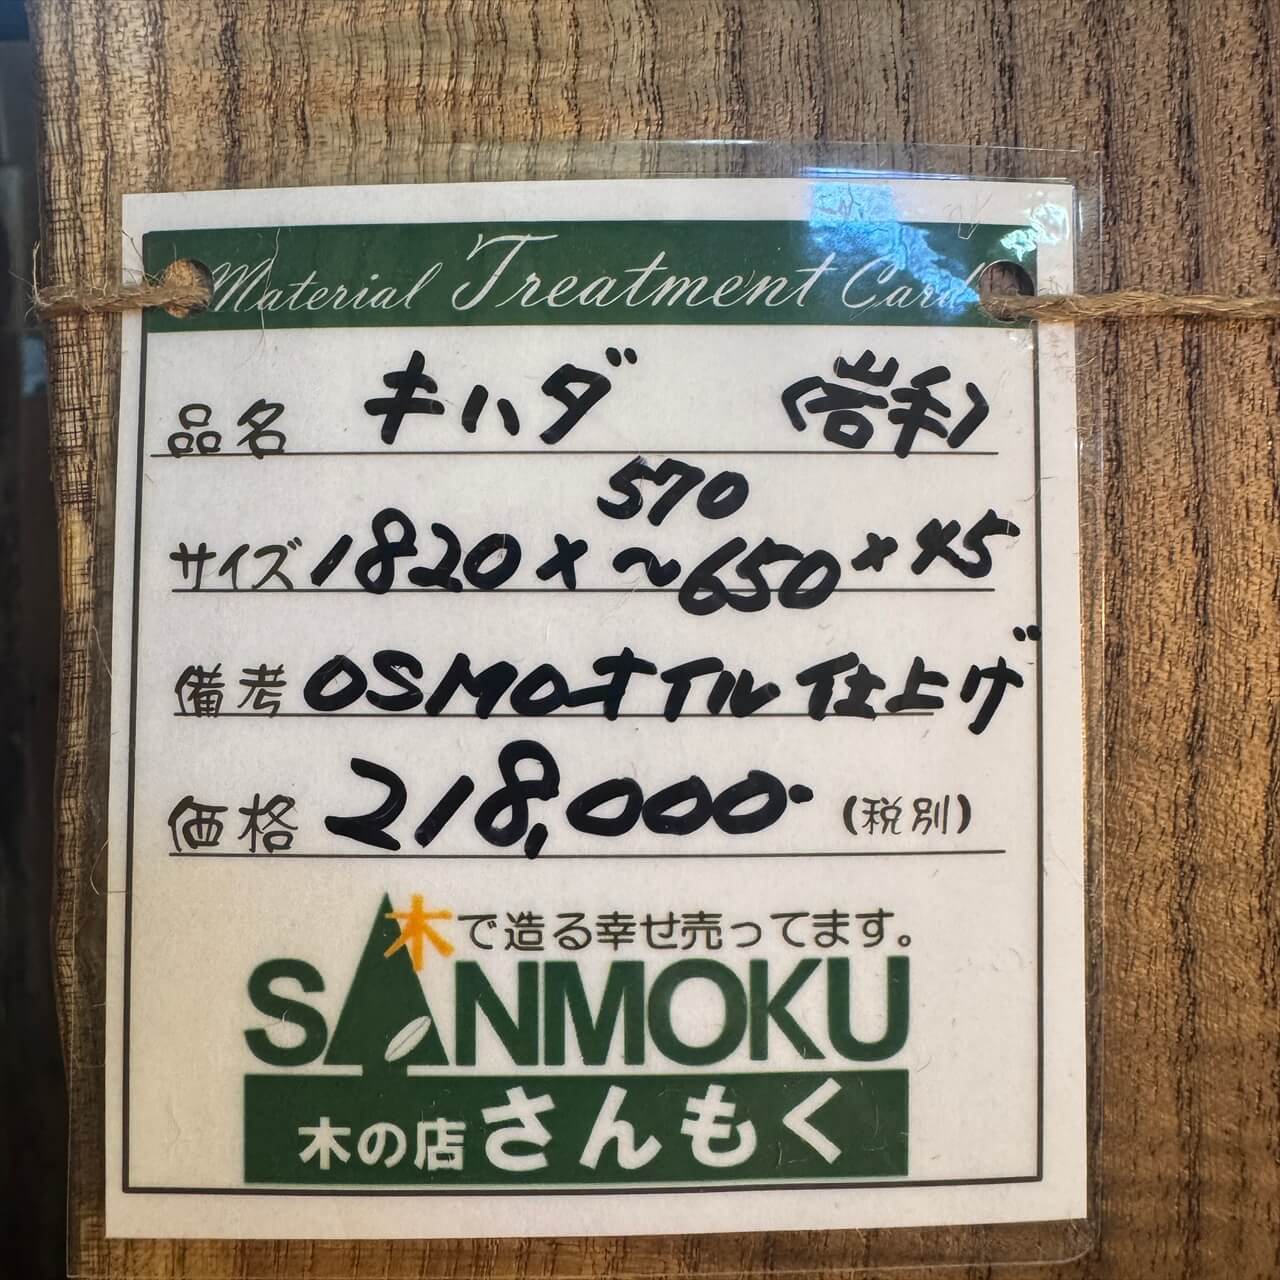 Material Treatment Card
品名 キハダ (岩手)
サイズ 1820 × 570 ~ 650 × 45
備考 OSMOオイル仕上げ
価格 218,000- (税別)
木で造る幸せ売ってます。
SANMOKU
木の店 さんもく